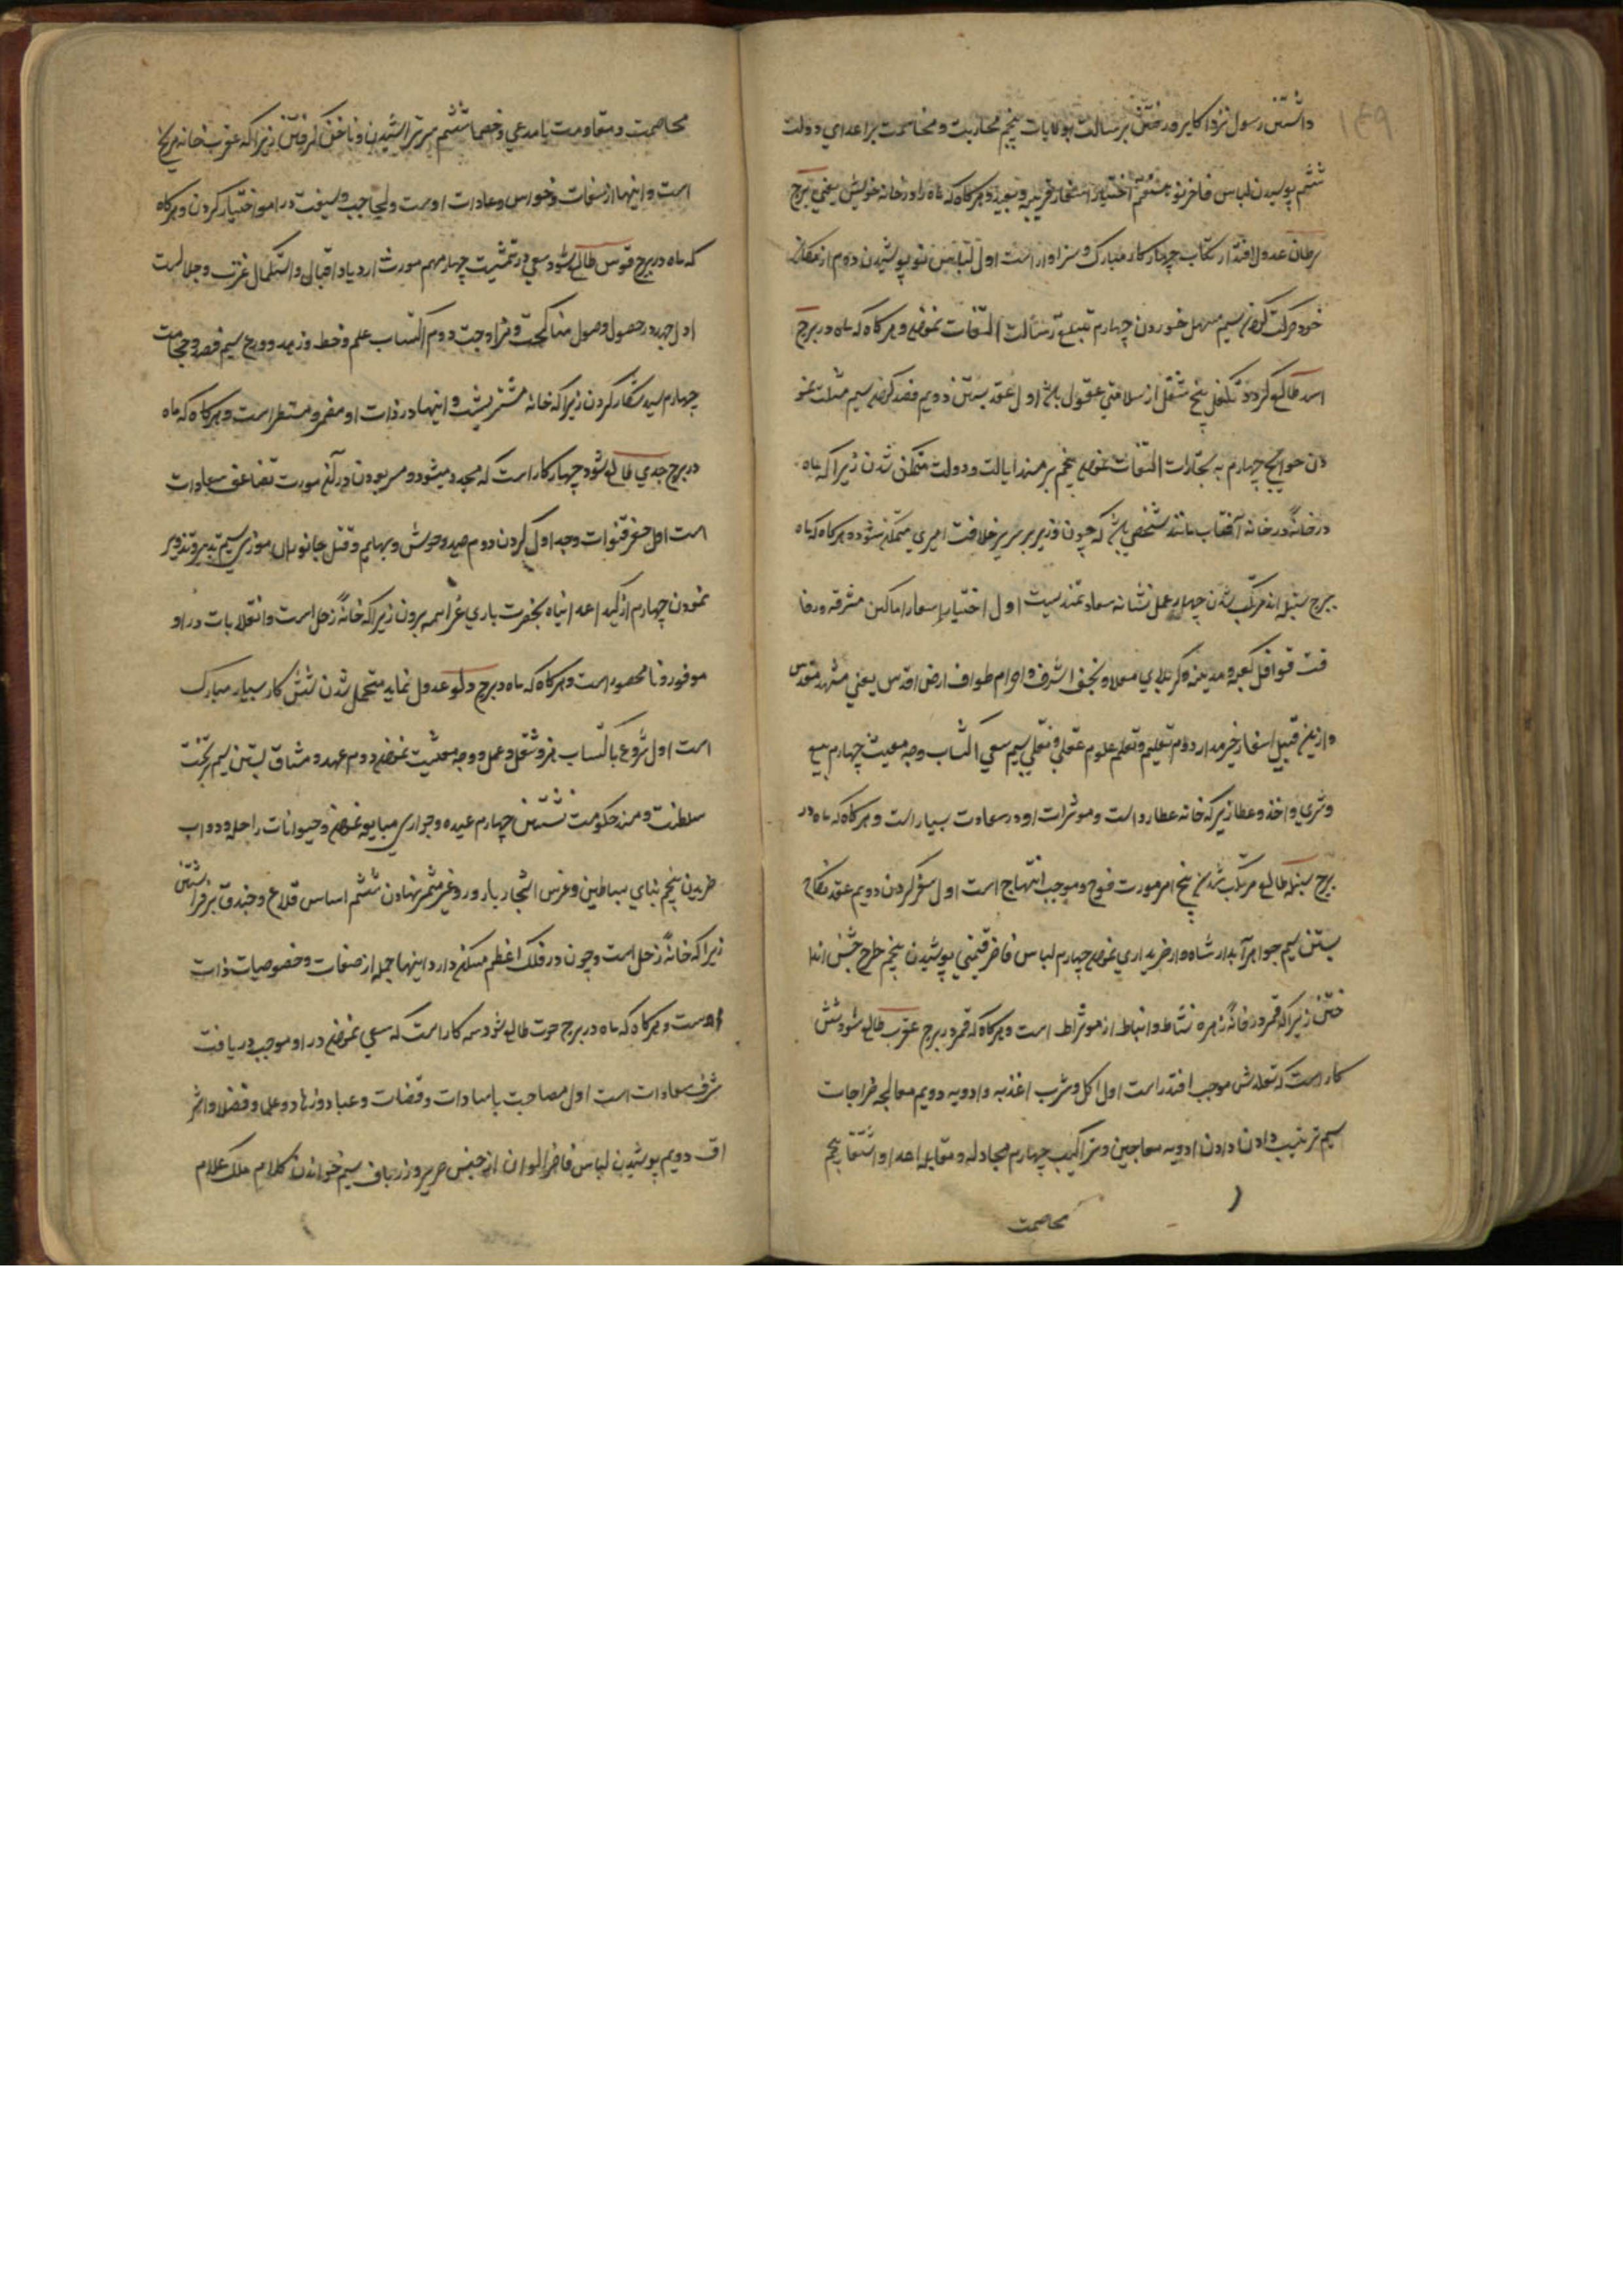 ۱۴۹
داشتن رسول نزد اکابر و رفتن برسالت بولایات پنجم محاربت و مخاصمت بر اعدای دولت
ششم پوشیدن لباس فاخر نو هشتم اختیار اسفار قریبه و بعیده و هرکاه که ماه را در خانه خویش یعنی برج
سرطان عدول افتد ارتکاب چهار کار مبارک و سزاوار است اول لباس نو پوشیدن دوم از مکان
خود حرکت کردن سیم مسهل خوردن چهارم تبلیغ رسالت التفات نمودن و هرکاه که ماه در برج
اسد طالع کردد تکفل پنج شغل از سلامتی عقول باشد اول عقد بستن دویم فصد کردن سیم مسئلت نمو
دن حوایج چهارم به تجارات التفات نمودن پنجم بر مسند ایالت و دولت متمکن شدن زیرا که ماه
در خانه آفتاب مانند شخصی باشد که چون وزیر بر سریر خلافت امیری متمکن شود و هرکاه که ماه
ببرج سنبله اند مرتکب شدن چهار عمل نشانه سعادتمندیست اول اختیار اسفار اماکن مشرفه و رفا
قت قوافل کعبه و مدینه و کربلای معلا و نجف اشرف و احرام طواف ارض اقدس یعنی مشهد مقدس
و ازین قبیل اسفار خیر مدار دوم تعلیم و تعلم علوم عقلی و نقلی سیم سعی اکتساب وجه معیشت چهارم بیع
و شری و اخذ و عطا زیرکه خانه عطارد است و موثرات او در سعادت بسیار است و هرکاه که ماه در
برج سنبله طالع مرتکب شدن پنج امر مورث فتوح و موجب ابتهاج است اول سفر کردن دویم عقد نکاح
بستن سیم جواهر آبدار شاه وار خریداری نمودن چهارم لباس فاخر قیمتی پوشیدن پنجم طرح جشن اندا
ختن زیرا که قمر در خانه زهره نشاط و انبساط از موثراط است و هرکاه که قمر در برج عقرب طالع شود شش
کار است که تقلدش موجب افتد راست اول اکل و شرب اغذیه و ادویه دویم معالجه خراجات
سیم ترتیب دادن دادن ادویه معاجین و تراکیب چهارم مجادله و مقابله اعدا و اشقیا پنجم
مخاصمت
مخاصمت و مقاومت با مدعی و خصما ششم سر تراشیدن و ناخن کرفتن زیرا که عقرب خانه مریخ
است و اینها از صفات و خواص و عادات اوست و کما یجب ویبغت در امو اختیار کردن و هرکاه
که ماه در برج قوس طالع شود سعی در تمشیت چهار مهم مورث ازدیاد اقبال و استکمال عزت و جلالست
اول جهد در حصول وصول مناکحت و مزاوجت دوم اکتساب علم و خط و زهد و ورع سیم فصد و حجامت
چهارم صید شکار کردن زیرا که خانه مشتریست و اینها در ذات او مضمر و مستطر است و هرکاه که ماه
در برج جدی طالع شود چهار کار است که مجد میشود و مربودن در آنها مورث تضاعف سعادات
است اول حفر قنوات و جداول کردن دوم صید وحوش و بهایم و قتل جانوران موذی سیم تدبیر و تزویر
نمودن چهارم از کید اعدا پناه بحضرت باری عز اسمه بردن زیرا که خانه زحل است و انقلابات در او
موفور و نامحصور است و هرکاه که ماه ببرج دلو عدول نماید متحمل شدن شش کار بسیار مبارک
است اول شروع باکتساب هر شغل و عمل و وجه معشیت نمودن دوم عهد و میثاق بستن سیم بر تخت
سلطنت و مسند حکومت نشستن چهارم عبیده و جواری مبایعه نمودن و حیوانات راحله و دواب
خریدن پنجم بنای بساطین و غرس اشجار بارور و غیر مثمر نهادن ششم اساس قلاع و خندق بر افراشتن
زیرا که خانه زحل است و چون در فلک اعظم مسکن دارد اینها جمله از صفات و خصوصیات ذات
اوست و هرکاه که ماه در برج حوت طالع شود سه کار است که سعی نمودن در او موجب دریافت
شرف سعادات است اول مصاحبت با سادات و قضات و عباد و زهاد و علما و فضلا و اشر
اف دویم پوشیدن لباس فاخر الوان از جنس حریر و زرباف سیم خواندن کلام ملک علام